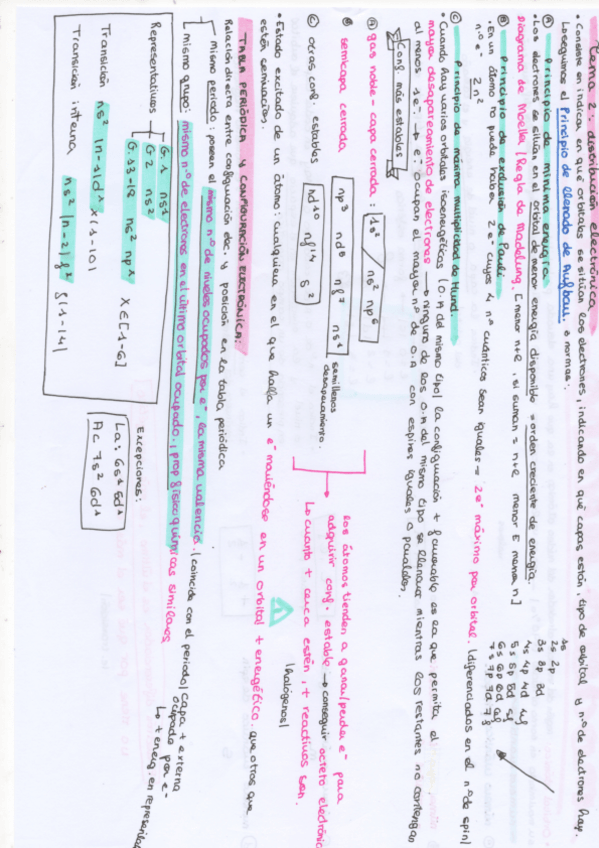 Tema 2: distribución electrónica
• Consiste en indicar en qué orbitales se sitúan los electrones, indicando en qué capas están, tipo de orbital y nº de electrones hay.
Lo seguimos el Principio de llenado de Aufbau. 3 normas:
Ⓐ Principio de mínima energía
• Los electrones se sitúan en el orbital de menor energía disponible = orden creciente de energía.
Diagrama de Moeller / Regla de Madelung. [menor n+l, si suman = n+l menor E menor n]
1s
2s 2p
3s 3p 3d
4s 4p 4d 4f
5s 5p 5d 5f
6s 6p 6d 6f
7s 7p 7d 7f
Ⓑ Principio de exclusión de Pauli
• En un átomo no puede haber 2e- cuyos 4 nº cuánticos sean iguales → 2e- máximo por orbital. (diferenciados en el nº de spin)
n.º e- 2n²
Ⓒ Principio de máxima multiplicidad de Hund.
• Cuando hay varios orbitales isoenergéticos (O.A del mismo tipo) la configuración + favorable es la que permita el
mayor desapareamiento de electrones → ninguno de los O.A del mismo tipo se llenarán mientras los restantes no contengan
al menos 1e-. → e- ocupan el mayor nº de O.A con espines iguales o paralelos.
Conf. más estables
Ⓐ gas noble - capa cerrada: 1s² / ns² np⁶
Ⓑ semicapa cerrada np³ nd⁵ nf⁷ ns¹ semillenos desapareamiento.
Ⓒ otras conf. estables nd¹⁰ nf¹⁴ s²
los átomos tienden a ganar/perder e- para
adquirir conf. estable → conseguir octeto electrónico
Lo cuanto + cerca estén, + reactivos son.
(halógenos)
• Estado excitado de un átomo: cualquiera en el que halla un e- moviéndose en un orbital + energético que otros que
estén semivacíos.
TABLA PERIÓDICA Y CONFIGURACIÓN ELECTRÓNICA:
Relación directa entre configuración elec. y posición en la tabla periódica
mismo periodo: poseen el mismo nº de niveles ocupados por e-, la misma valencia. (coincide con el periodo) capa + externa
ocupada por e-
Lo + energ. en representa
mismo grupo: mismo nº de electrones en el último orbital ocupado., prop físico químicas similares
Representativos
G.1 ns¹
G.2 ns²
G.13-18 ns² npˣ X∈[1-6]
Transición ns² (n-1)dˣ x(1-10)
Transición interna ns² (n-2)fˣ f(1-14)
Excepciones:
La: 6s² 5d¹
Ac 7s² 6d¹